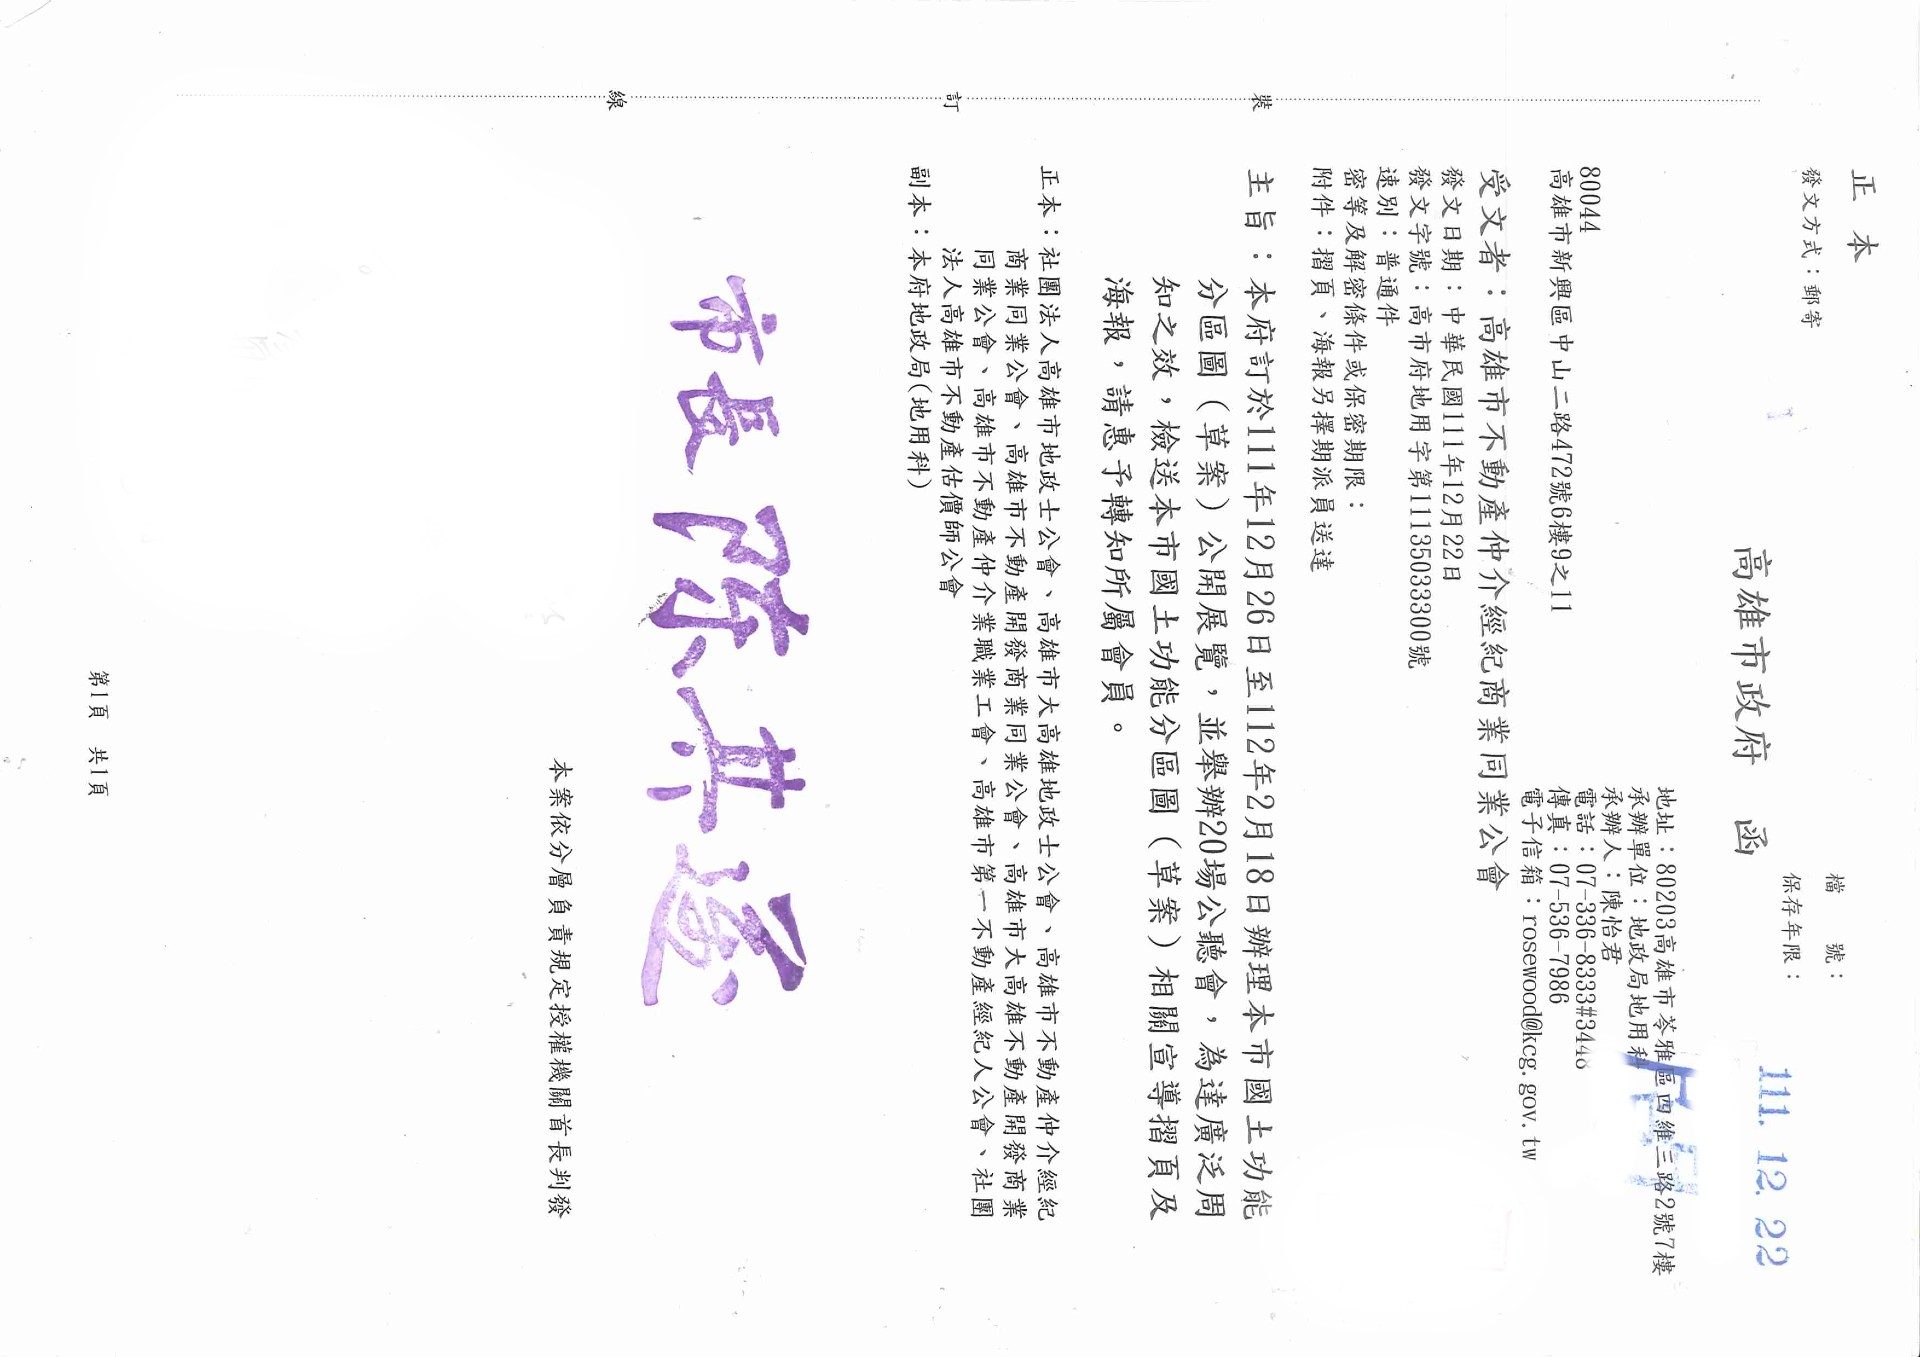 正本
發文方式：郵寄
檔　　號：
保存年限：
111. 12. 22
高雄市政府　函
地址：80203高雄市苓雅區四維三路2號7樓
承辦單位：地政局地用科
承辦人：陳怡君
電話：07-336-8333#3448
傳真：07-536-7986
電子信箱：rosewood@kcg.gov.tw
80044
高雄市新興區中山二路472號6樓9之11
受文者：高雄市不動產仲介經紀商業同業公會
發文日期：中華民國111年12月22日
發文字號：高市府地用字第11135033300號
速別：普通件
密等及解密條件或保密期限：
附件：摺頁、海報另擇期派員送達
主旨：本府訂於111年12月26日至112年2月18日辦理本市國土功能
分區圖（草案）公開展覽，並舉辦20場公聽會，為達廣泛周
知之效，檢送本市國土功能分區圖（草案）相關宣導摺頁及
海報，請惠予轉知所屬會員。
正本：社團法人高雄市地政士公會、高雄市大高雄地政士公會、高雄市不動產仲介經紀
商業同業公會、高雄市不動產開發商業同業公會、高雄市大高雄不動產開發商業
同業公會、高雄市不動產仲介業職業工會、高雄市第一不動產經紀人公會、社團
法人高雄市不動產估價師公會
副本：本府地政局(地用科)
市長 陳其邁
本案依分層負責規定授權機關首長判發
第1頁　共1頁
裝
訂
線